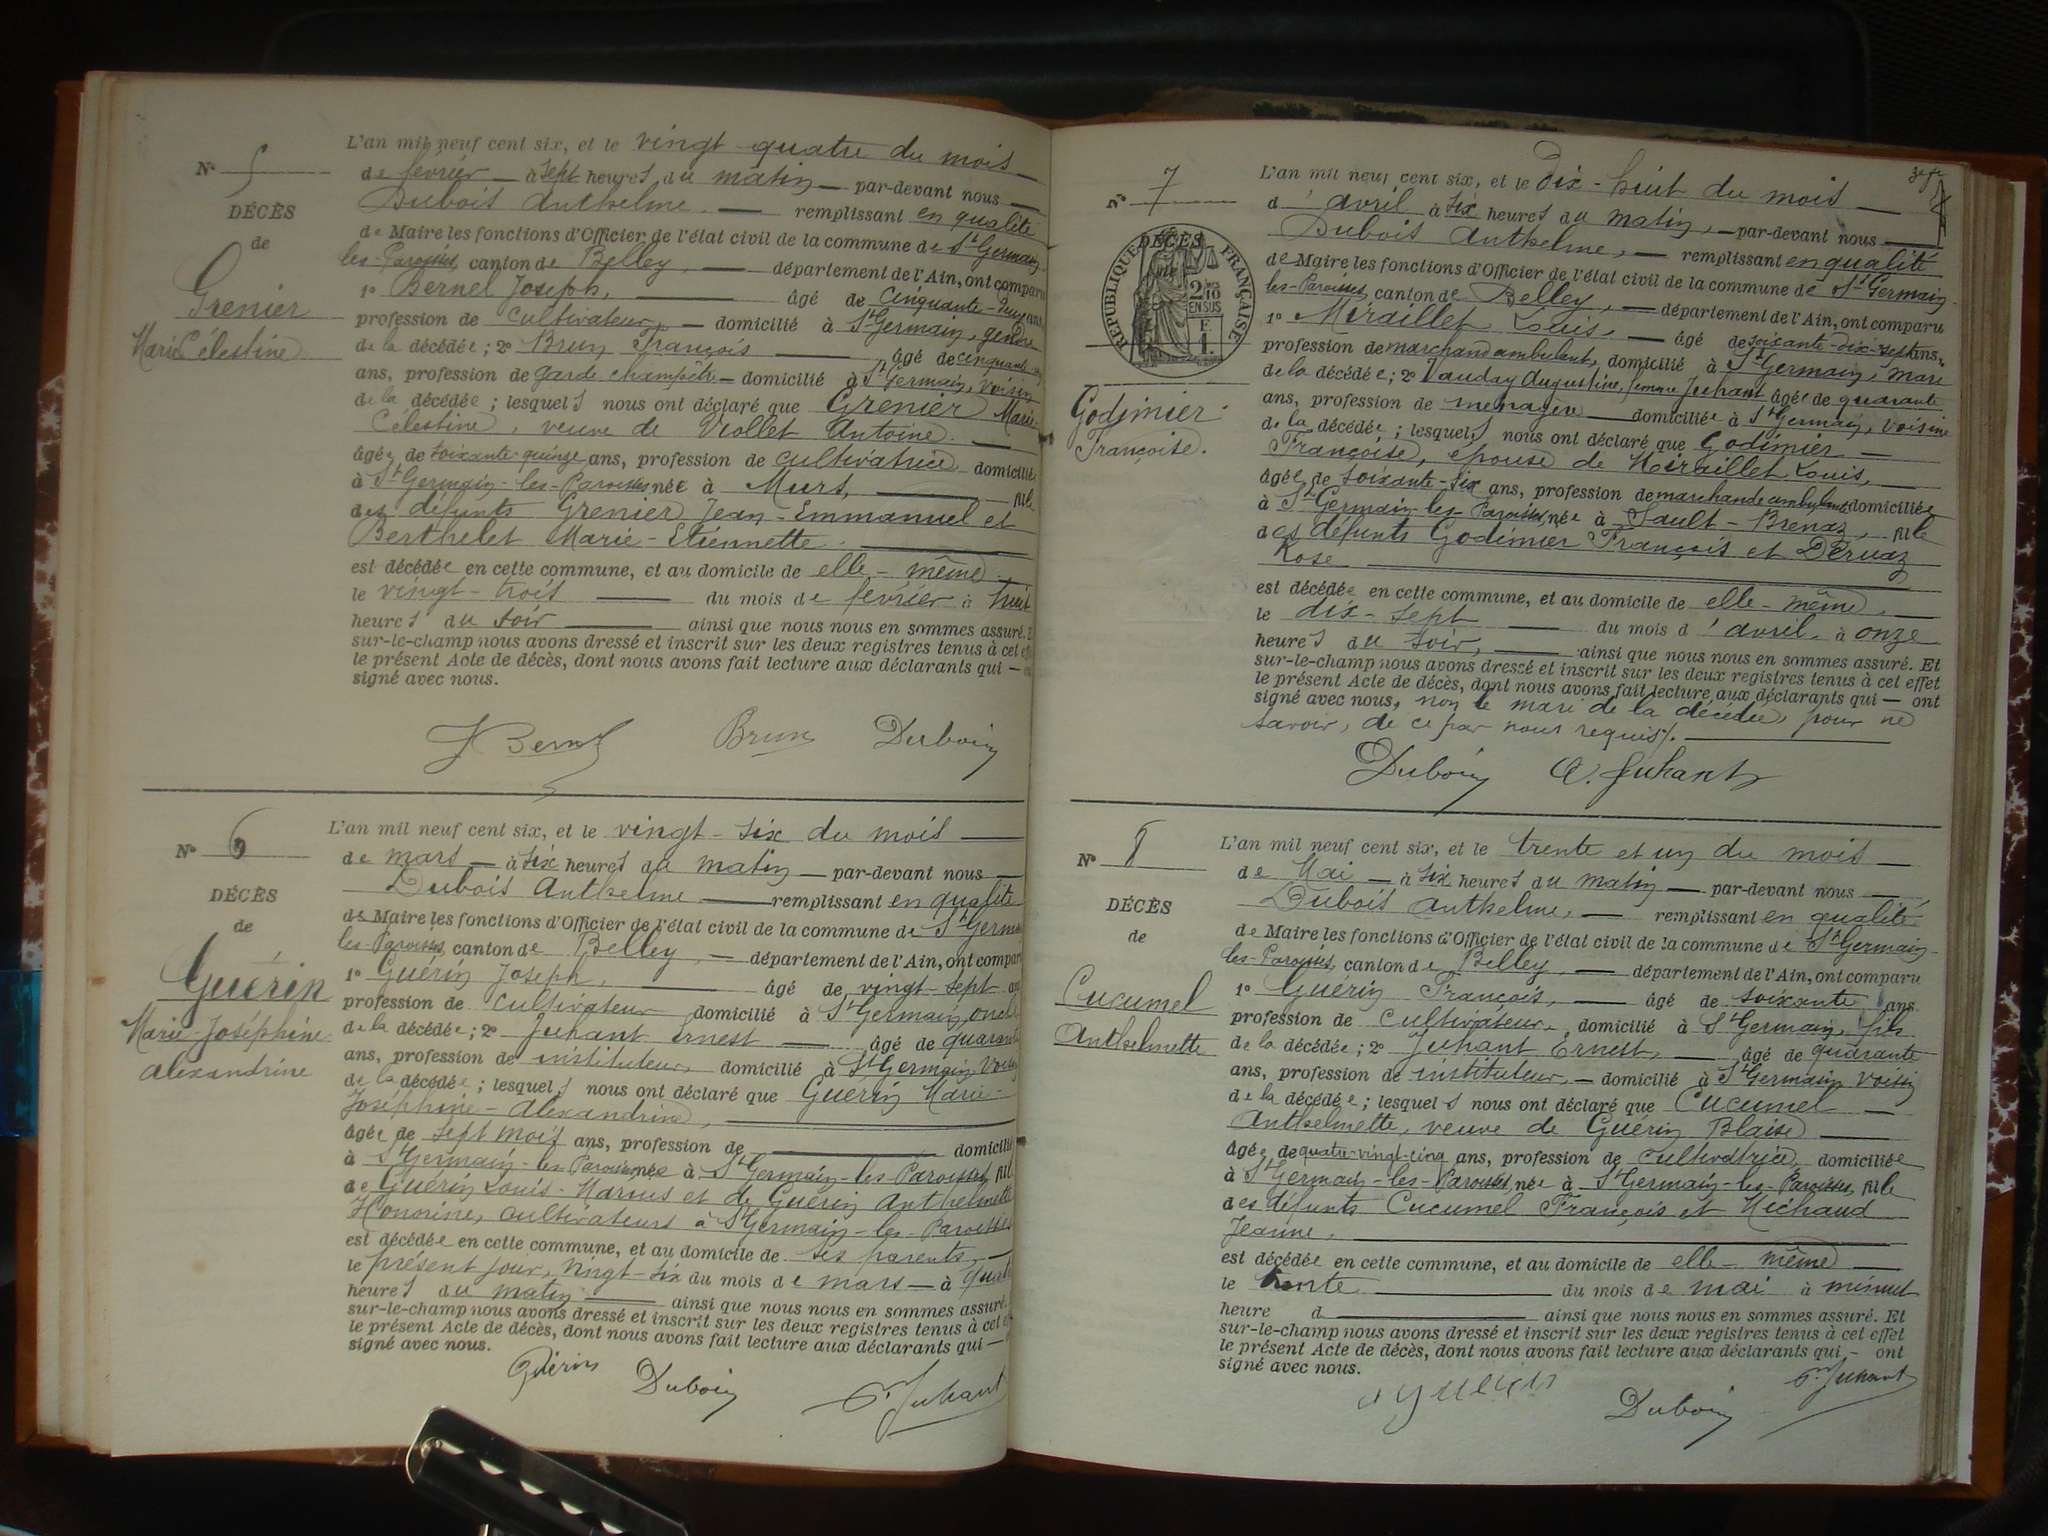 N° 5
DÉCÈS
de
Grenier
Marie Célestine
L'an mil neuf cent six, et le vingt-quatre du mois
de février à sept heures du matin par-devant nous
Dubois Anthelme remplissant en qualité
de Maire les fonctions d'Officier de l'état civil de la commune de St Germain-
les-Paroisses, canton de Belley, département de l'Ain, ont comparu
1° Bernel Joseph, âgé de cinquante-deux ans,
profession de cultivateur, domicilié à St Germain, gendre
de la décédée ; 2° Brun François âgé de cinquante
ans, profession de garde champêtre domicilié à St Germain, voisin
de la décédée ; lesquels nous ont déclaré que Grenier Marie-
Célestine, veuve de Viollet Antoine.
âgée de soixante-quinze ans, profession de cultivatrice, domiciliée
à St Germain-les-Paroisses née à Murs, fille
des défunts Grenier Jean-Emmanuel et
Berthelet Marie-Etiennette.
est décédée en cette commune, et au domicile de elle-même
le vingt-trois du mois de février à huit
heures du soir ainsi que nous nous en sommes assuré. Et
sur-le-champ nous avons dressé et inscrit sur les deux registres tenus à cet effet
le présent Acte de décès, dont nous avons fait lecture aux déclarants qui — ont
signé avec nous.
J Bernel Brun Dubois
N° 6
DÉCÈS
de
Guérin
Marie-Joséphine
Alexandrine
L'an mil neuf cent six, et le vingt-six du mois
de mars à six heures du matin par-devant nous
Dubois Anthelme remplissant en qualité
de Maire les fonctions d'Officier de l'état civil de la commune de St Germain
les-Paroisses, canton de Belley, département de l'Ain, ont comparu
1° Guérin Joseph, âgé de vingt-sept ans
profession de cultivateur domicilié à St Germain, oncle
de la décédée ; 2° Juhant Ernest âgé de quarante
ans, profession de instituteur, domicilié à St Germain voisin
de la décédée ; lesquels nous ont déclaré que Guérin Marie-
Joséphine-Alexandrine,
âgée de sept mois ans, profession de domiciliée
à St Germain-les-Paroisses née à St Germain-les-Paroisses, fille
de Guérin Louis-Marius et de Guérin Anthelmette
Honorine, cultivateurs à St Germain-les-Paroisses
est décédée en cette commune, et au domicile de ses parents,
le présent jour, vingt-six du mois de mars à quatre
heures du matin ainsi que nous nous en sommes assuré.
sur-le-champ nous avons dressé et inscrit sur les deux registres tenus à cet effet
le présent Acte de décès, dont nous avons fait lecture aux déclarants qui —
signé avec nous.
Guérin Dubois E. Juhant
3e fe
N° 7
DÉCÈS
de
RÉPUBLIQUE FRANÇAISE
2/10
EN SUS
F.
1.
Godimier
Françoise.
L'an mil neuf cent six, et le dix-huit du mois
d'avril à six heures du matin, par-devant nous
Dubois Anthelme, remplissant en qualité
de Maire les fonctions d'Officier de l'état civil de la commune de St Germain-
les-Paroisses, canton de Belley, département de l'Ain, ont comparu
1° Miraillet Louis, âgé de soixante-dix-sept ans,
profession de marchand ambulant, domicilié à St Germain, mari
de la décédée ; 2° Vauday Augustine, femme Juhant âgée de quarante
ans, profession de ménagère domiciliée à St Germain, voisine
de la décédée ; lesquels nous ont déclaré que Godimier
Françoise, épouse de Miraillet Louis,
âgée de soixante-six ans, profession de marchande ambulante domiciliée
à St Germain-les-Paroisses, née à Sault-Brenaz, fille
des défunts Godimier François et Dervaz
Rose
est décédée en cette commune, et au domicile de elle-même,
le dix-sept du mois d'avril, à onze
heures du soir, ainsi que nous nous en sommes assuré. Et
sur-le-champ nous avons dressé et inscrit sur les deux registres tenus à cet effet
le présent Acte de décès, dont nous avons fait lecture aux déclarants qui — ont
signé avec nous, non le mari de la décédée, pour ne
savoir, de ce par nous requis.
Dubois A. Juhant
N° 8
DÉCÈS
de
Cucumel
Anthelmette
L'an mil neuf cent six, et le trente et un du mois
de Mai à six heures du matin par-devant nous
Dubois Anthelme, remplissant en qualité
de Maire les fonctions d'Officier de l'état civil de la commune de St Germain-
les-Paroisses, canton de Belley, département de l'Ain, ont comparu
1° Guérin François, âgé de soixante ans
profession de cultivateur, domicilié à St Germain, fils
de la décédée ; 2° Juhant Ernest, âgé de quarante
ans, profession de instituteur, domicilié à St Germain voisin
de la décédée ; lesquels nous ont déclaré que Cucumel
Anthelmette, veuve de Guérin Blaise
âgée de quatre-vingt-cinq ans, profession de cultivatrice domiciliée
à St Germain-les-Paroisses, née à St Germain-les-Paroisses, fille
des défunts Cucumel François et Michaud
Jeanne,
est décédée en cette commune, et au domicile de elle-même
le trente du mois de mai à minuit
heure d ainsi que nous nous en sommes assuré. Et
sur-le-champ nous avons dressé et inscrit sur les deux registres tenus à cet effet
le présent Acte de décès, dont nous avons fait lecture aux déclarants qui, — ont
signé avec nous.
Dubois E. Juhant